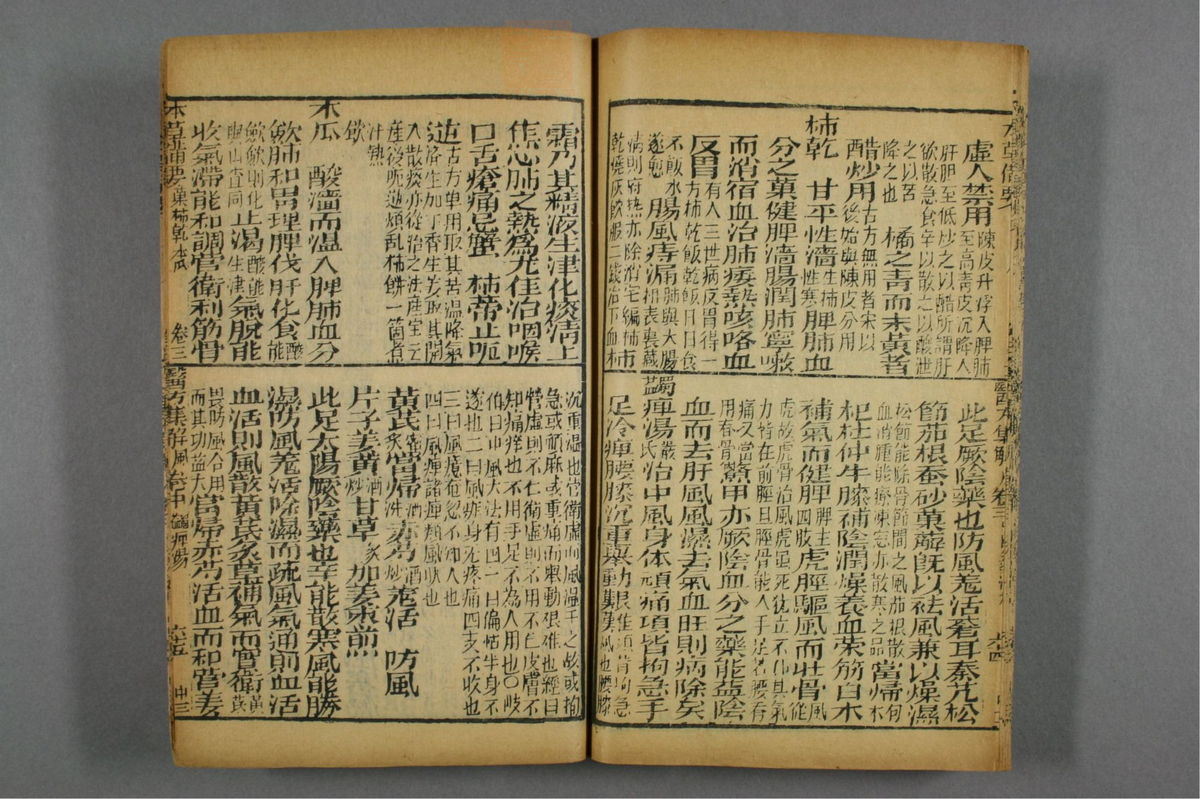 虛人禁用陳皮升浮入脾肺
治高青皮沉降入
肝胆至低炒之以醋所謂肝
欲散急食辛以散之以酸泄
之以苦
降之也 橘之青而未黃者
醋炒用古方無用者宋以
後始與陳皮分用
柿乾 甘平性濇生柿
性寒脾肺血
分之菓健脾濇腸潤肺寧嗽
而消宿血治肺痿熱咳咯血
反胃有人三世病反胃得一
方柿乾飯乾飯日日食
不飯水
遂愈 腸風痔漏肺與大腸
相表裏臟
病則府熱亦除消宅編柿
乾燒灰飲服二錢治下血 柿
此足厥陰藥也防風羗活蒼耳秦艽松
節茄根蚕砂萆薢旣以袪風兼以燥濕
松節能除骨節間之風茄根散
血消腫能療凍瘡亦散寒之品當歸枸
杞杜仲牛膝補陰潤燥養血荣筋白木
補氣而健脾脾主
四肢虎脛驅風而壯骨風從
虎故虎骨治風虎雖死犹立不仆其氣
力皆在前脛且脛骨能人手足若腰脊
痛又當
用脊骨鱉甲亦厥陰血分之藥能益陰
血而去肝風風濕去氣血旺則病除矣
蠲痺湯嚴氏治中風身体頑痛項皆拘急手
足冷痺腰膝沉重舉動艱难項背拘急
風也腰膝
霜乃其精液生津化痰淸上
焦心肺之熱為尤佳治咽喉
口舌瘡痛忌蟹 柿蒂止呃
逆古方单用取其苦温降氣
濟生加丁香生姜取其開
入散痰亦從治之法產宝云
產後呃逆煩乱柿餅一箇煮
汁熱
飲
木瓜 酸濇而温入脾肺血分
歛肺和胃理脾伐肝化食酸能
歛歛則化
與山查同止渴酸能
生津氣脫能
收氣滯能和調營衛利筋骨
本草備要 菓 柿乾 木瓜 卷三
沉重濕也營衛虛而風濕干之故或拘
急或頑麻或重痛而舉動艰难也經曰
營虛則不仁衛虛則不用不仁皮膚不
知痛痒也不用手足不為人用也〇岐
伯曰中風大法有四一曰偏枯半身不
遂也二曰風痱身无疼痛四支不收也
三曰風懿奄忽不知人也
四曰風痺諸痺類風狀也
黃芪蜜炙當歸酒洗赤芍酒炒羗活 防風
片子姜黃酒炒甘草炙 加姜枣煎
此足太陽厥陰藥也辛能散寒風能勝
濕防風羗活除濕而疏風氣通則血活
血活則風散黃芪炙草補氣而實衛黃芪
畏防風合用
而其功益大當歸赤芍活血而和營姜
醫方集解 風 卷中 蠲痺湯 六五 中三